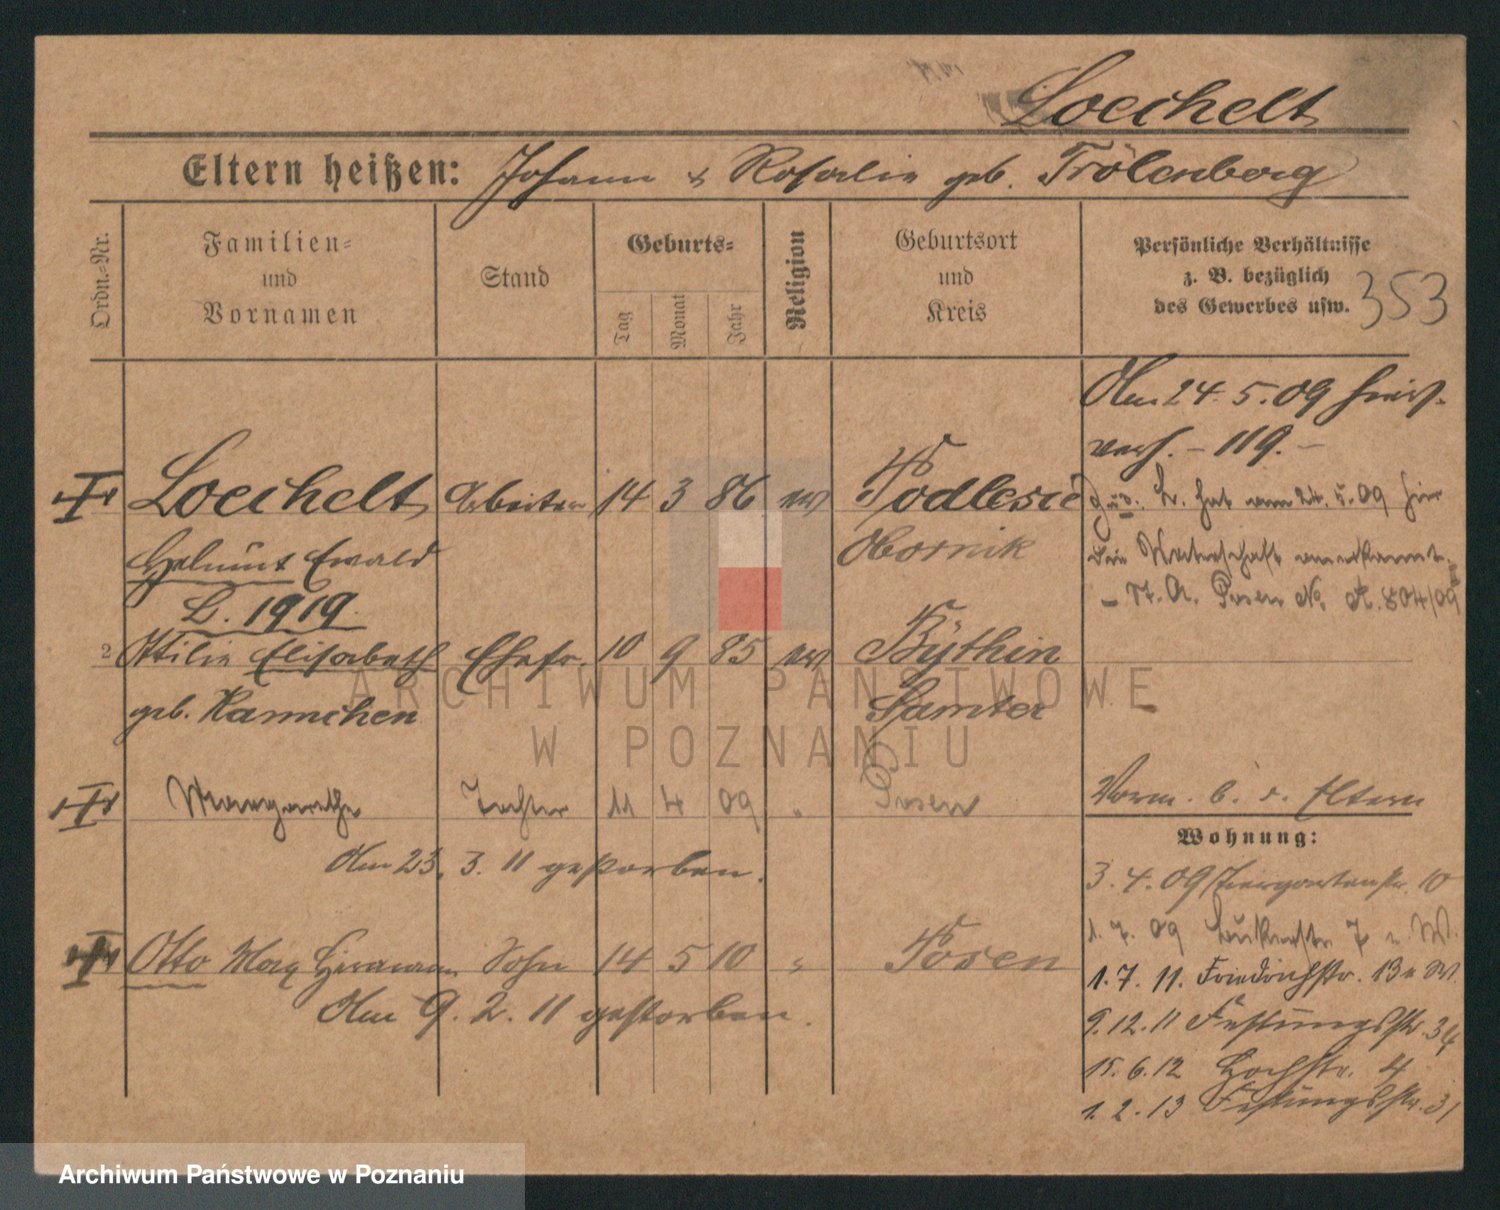 Loechelt
Eltern heißen: Johann & Rosalie geb. Trölenberg
Ordn.-Nr.
Familien-
und
Vornamen
Stand
Geburts-
Tag
Monat
Jahr
Religion
Geburtsort
und
Kreis
Persönliche Verhältnisse
z. B. bezüglich
des Gewerbes usw.
353
Am 24. 5. 09 hier
verh. - 119. -
Loechelt Arbeiter 14 3 86 ev Podlesie
Helmut Ewald Obornik
L. 1919
L. hat am 24. 5. 09 hier
die Vaterschaft anerkannt
- St. A. Posen No A. 804/09
2 Ottilie Elisabeth Ehefr. 10 9 85 ev Bythin
geb. Hannchen Samter
Margarethe Tochter 11 4 09 " Posen
Am 23. 3. 11 gestorben.
Vorm. b. d. Eltern
Wohnung:
3. 4. 09 Tiergartenstr. 10
1. 7. 09
Otto Max Hermann Sohn 14 5 10 " Posen
Am 9. 2. 11 gestorben.
1. 7. 11. Friedrichstr. 13 W.
9. 12. 11 Festungsstr. 34
15. 6. 12 Hochstr. 4
1. 2. 13 Festungsstr. 31
ARCHIWUM PAŃSTWOWE
W POZNANIU
Archiwum Państwowe w Poznaniu